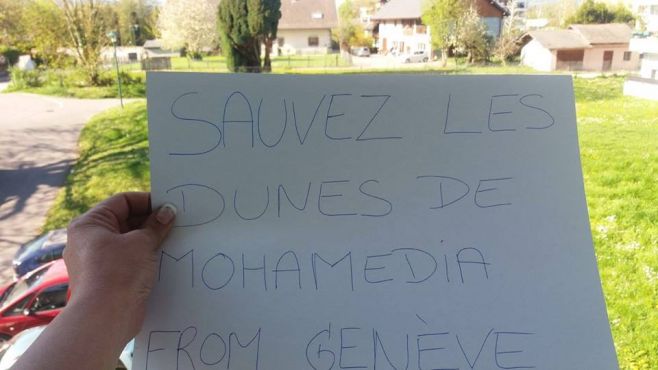 SAUVEZ LES
DUNES DE
MOHAMEDIA
FROM GENÈVE